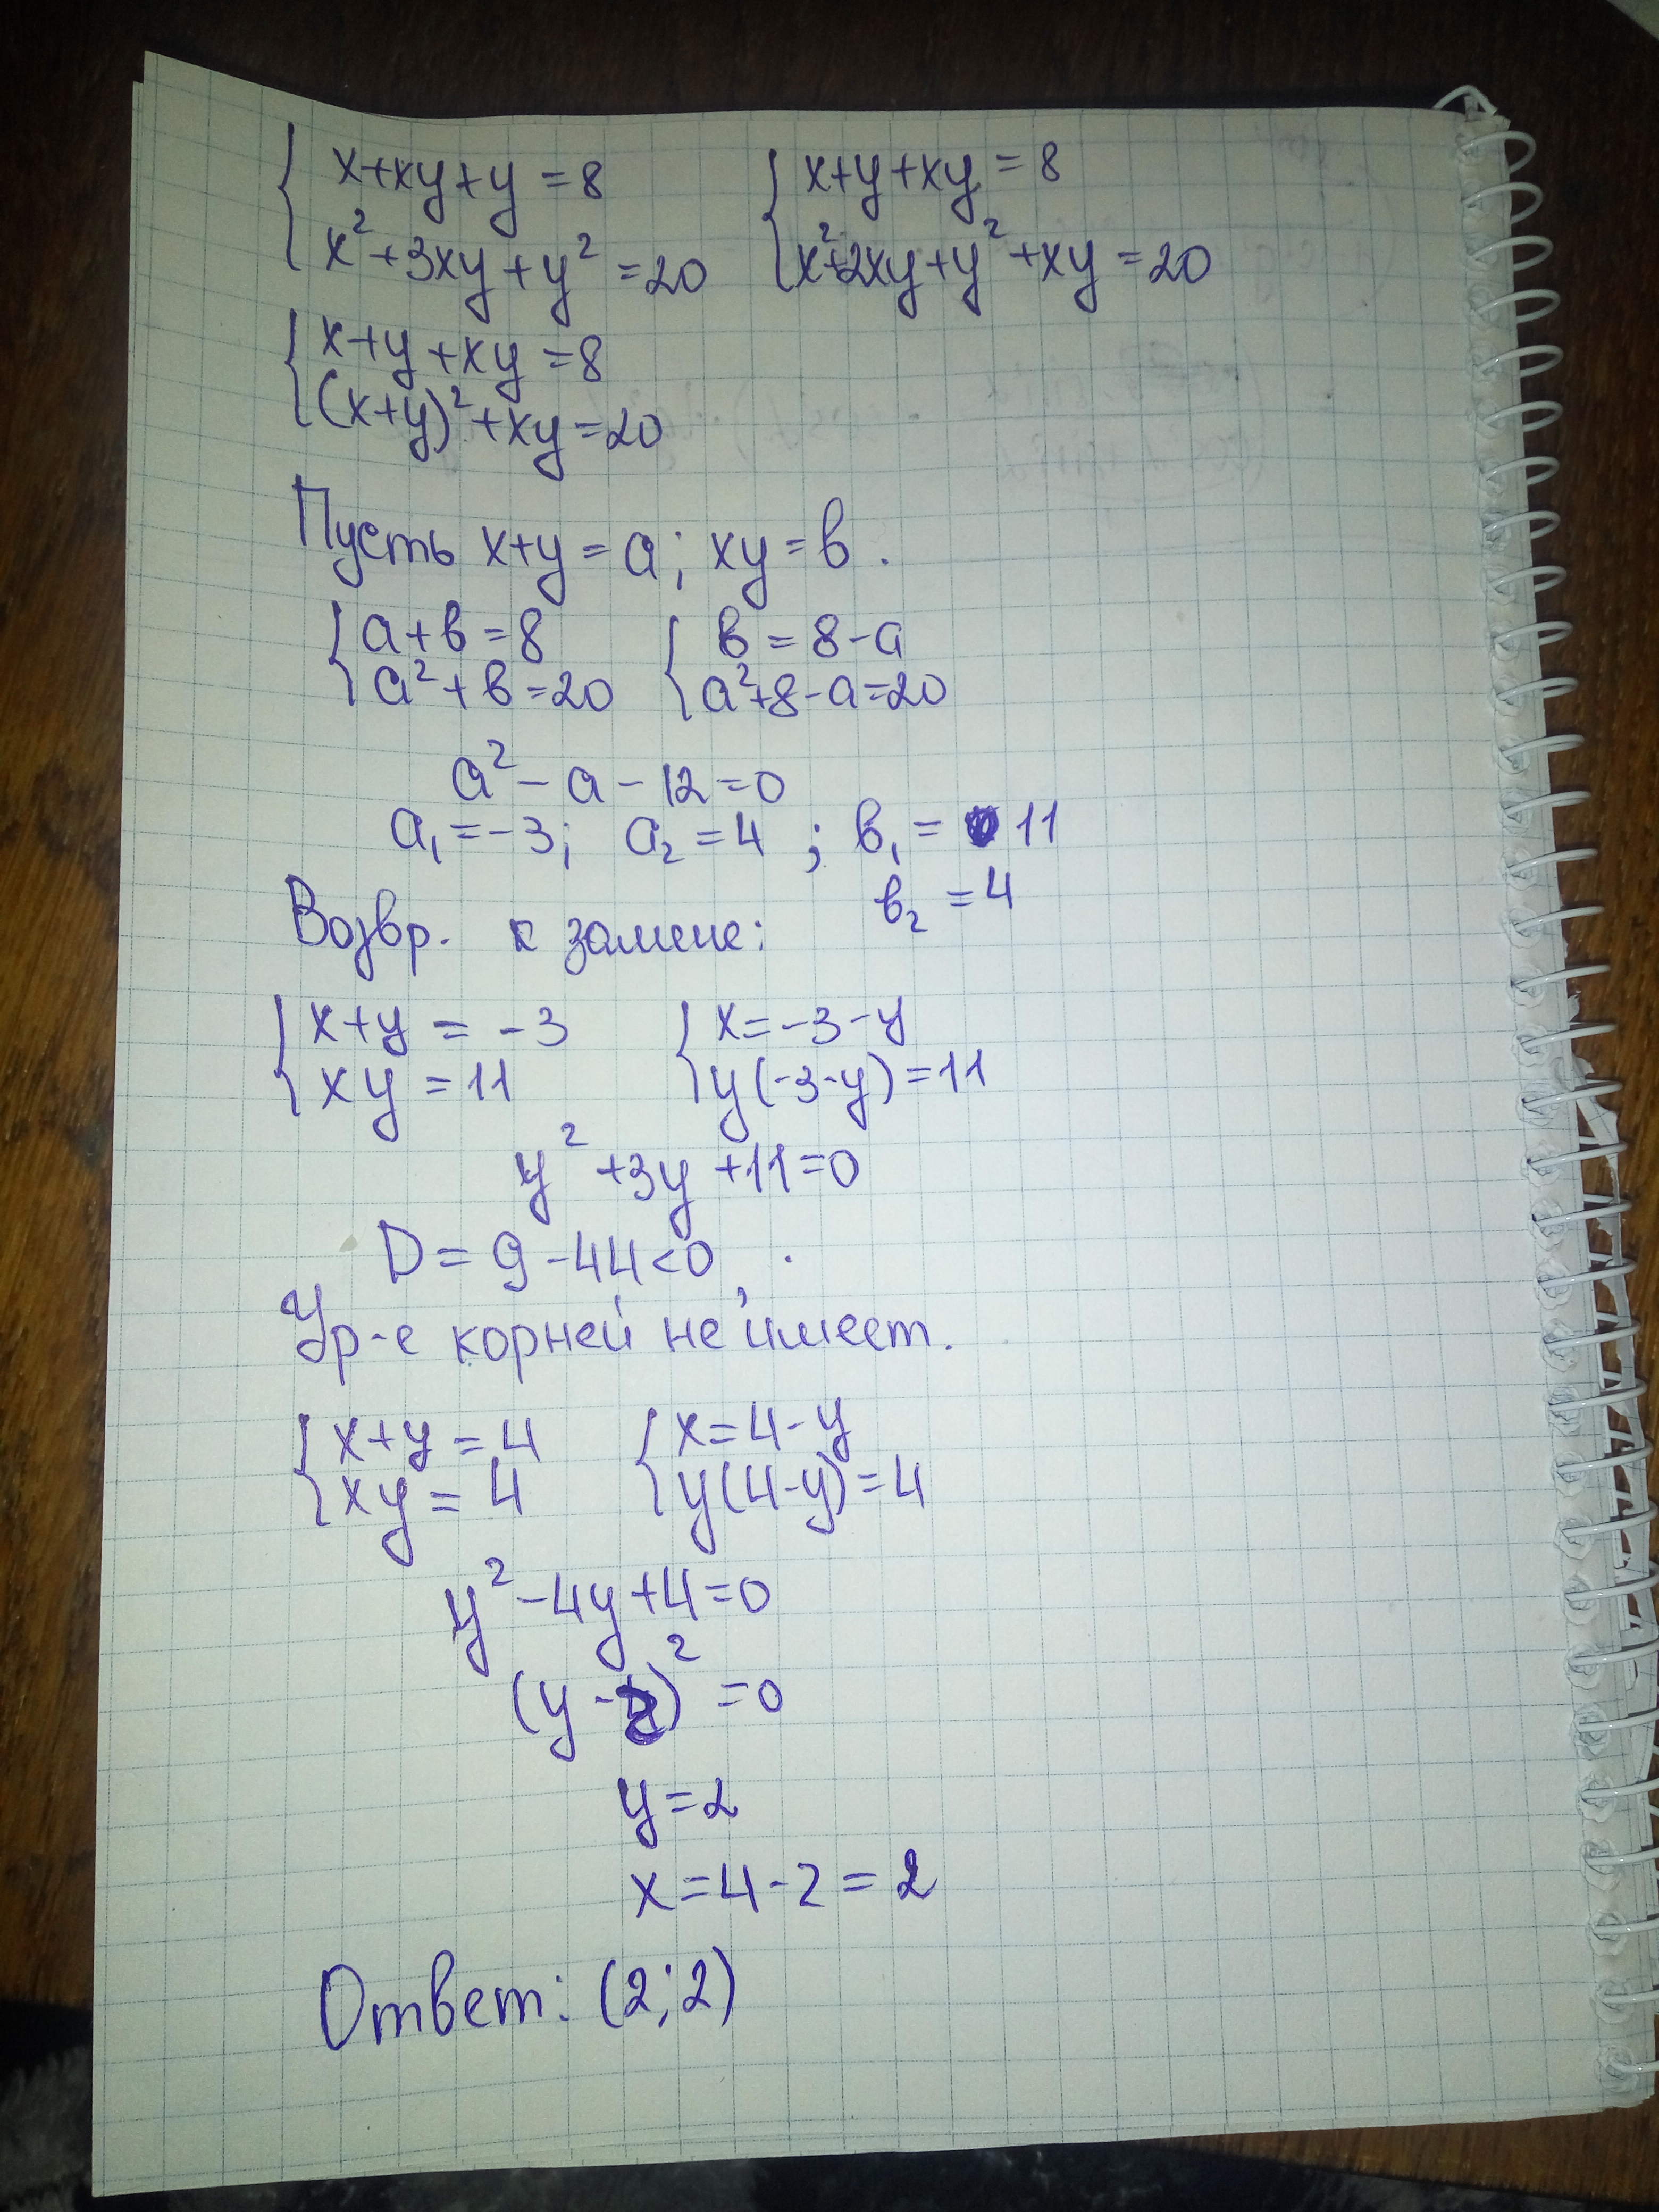 { x+xy+y=8 { x+y+xy=8
{ x²+3xy+y²=20 { x²+2xy+y²+xy=20
{ x+y+xy=8
{ (x+y)²+xy=20
Пусть x+y=a; xy=в.
{ a+в=8 { в=8-a
{ a²+в=20 { a²+8-a=20
a²-a-12=0
a₁=-3; a₂=4; в₁=11
в₂=4
Возвр. к замене:
{ x+y=-3 { x=-3-y
{ xy=11 { y(-3-y)=11
y²+3y+11=0
D=9-44<0,
Ур-е корней не имеет.
{ x+y=4 { x=4-y
{ xy=4 { y(4-y)=4
y²-4y+4=0
(y-2)²=0
y=2
x=4-2=2
Ответ: (2;2)